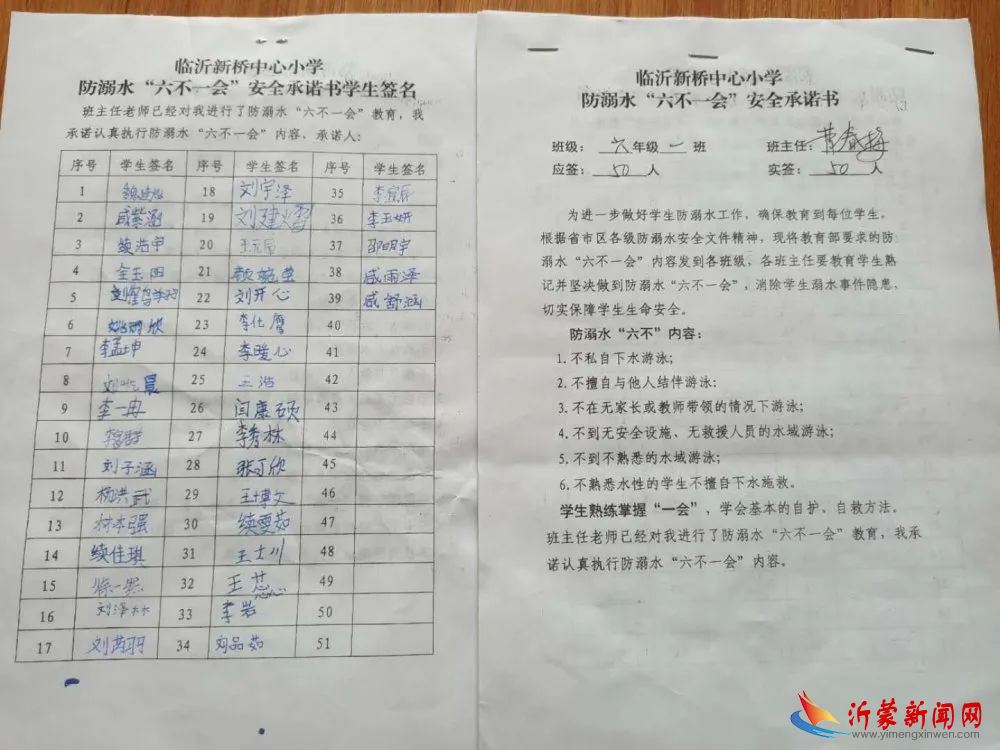 临沂新桥中心小学
防溺水“六不一会”安全承诺书学生签名
班主任老师已经对我进行了防溺水“六不一会”教育，我
承诺认真执行防溺水“六不一会”内容、承诺人：
序号 学生签名 序号 学生签名 序号 学生签名
1 18 刘宇泽 35 李宜辰
2 戚紫涵 19 刘建熠 36 李玉妍
3 续浩宇 20 王元辰 37 邵明宇
4 全玉阳 21 颜婉莹 38 戚雨泽
5 22 刘开心 39 戚舒涵
6 23 李仕腾 40
7 李孟坤 24 李暖心 41
8 25 王浩 42
9 李一冉 26 闫康硕 43
10 27 李秀林 44
11 刘子涵 28 张可欣 45
12 杨洪武 29 王博文 46
13 林本强 30 续雯茹 47
14 续佳琪 31 王士川 48
15 徐一然 32 王蕊 49
16 刘泽林 33 李岩 50
17 刘芮羽 34 刘品茹 51
临沂新桥中心小学
防溺水“六不一会”安全承诺书
班级： 六年级一 班 班主任：
应签： 50 人 实签： 50 人
为进一步做好学生防溺水工作，确保教育到每位学生。
根据省市区各级防溺水安全文件精神，现将教育部要求的防
溺水“六不一会”内容发到各班级，各班主任要教育学生熟
记并坚决做到防溺水“六不一会”，消除学生溺水事件隐患，
切实保障学生生命安全。
防溺水“六不”内容：
1.不私自下水游泳；
2.不擅自与他人结伴游泳；
3.不在无家长或教师带领的情况下游泳；
4.不到无安全设施、无救援人员的水域游泳；
5.不到不熟悉的水域游泳；
6.不熟悉水性的学生不擅自下水施救。
学生熟练掌握“一会”，学会基本的自护、自救方法。
班主任老师已经对我进行了防溺水“六不一会”教育，我承
诺认真执行防溺水“六不一会”内容。
沂蒙新闻网
www.yimengxinwen.com